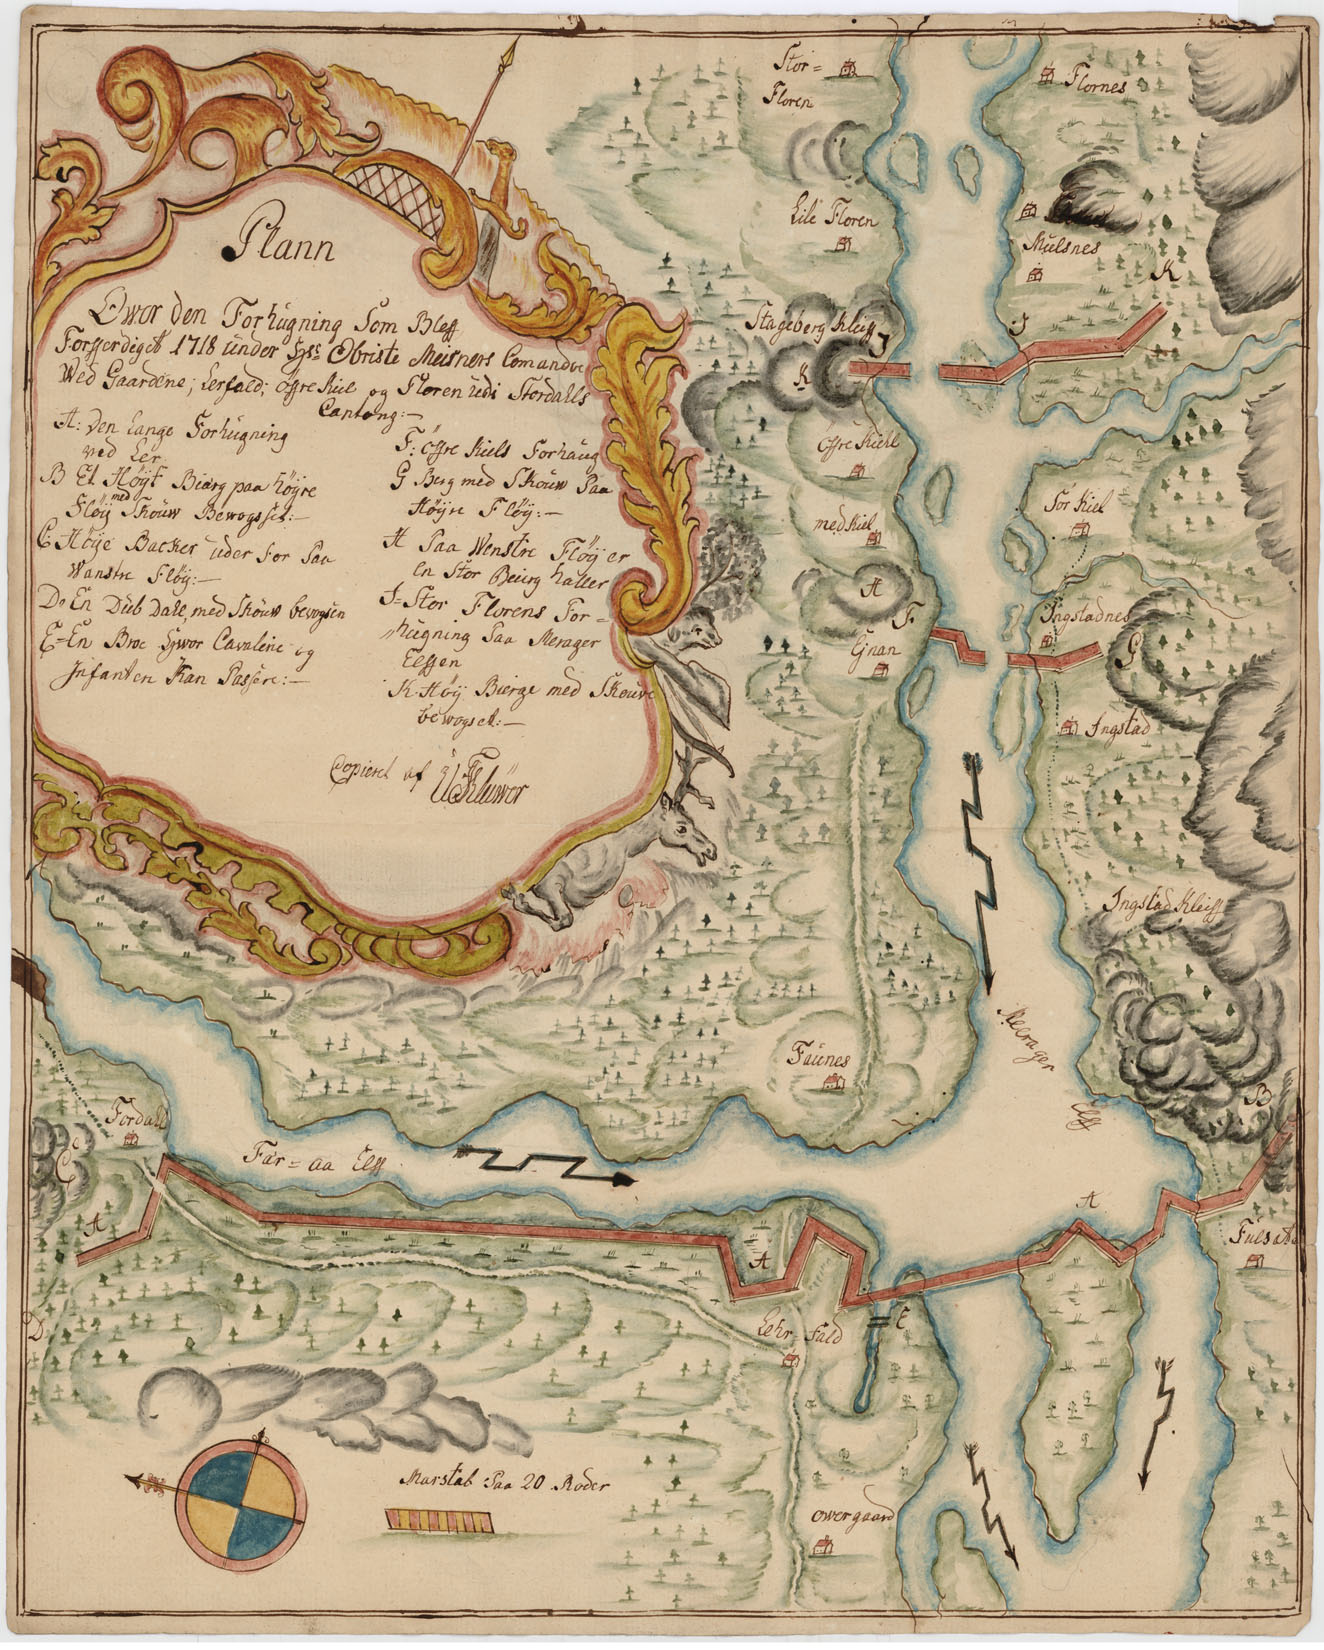 Plann
Qwor den Forhùgning Som Bleff
Forfferdiget 1718 ùnder Hr: Obriste Meisners Comando
Wed Gaardene, Lerfald; Offre Kiel og Floren ùdi Stordalls
Cantong:-
A: Den Lange Forhùgning
ved Ler
B Et Höyt Bierg paa höyre
Flöy med Skoùw Bewogset:-
C. Höye Backer ùder for Paa
Wenstre Flöy:-
D: En Dùb Dale, med Skoùw bewogsen
E=En Broe Hwor Cavalerie og
Infanteri Kan Passere:-
F: öffre Kiels Forhaùg
G Berg med Skoùw Paa
Höyre Flöy:-
H Paa Wenstre Flöy er
En Stor Beürg haller
J=Stor Florens For=
hùgning Paa Merager
Elffen
K. Höy Bierge med Skoùw
bewogset:-
Copieret af Klüwer
Stor=
Floren
Flornes
Lile Floren
Mùlsnes
K
J
Stageberg Kleiff
J
K
Öffre Kiehl
Sör Kiel
med Kiel
H
F
Gnan
Ingstadnes
G
Ingstad
Ingstad Kleiff
Faùnes
Meerager
Elff
B
Fordahl
C
Far=aa Elff
A
A
A
Fùlstad
D
Lehr Fald
E
Marstab Paa 20 Roder
owergaard